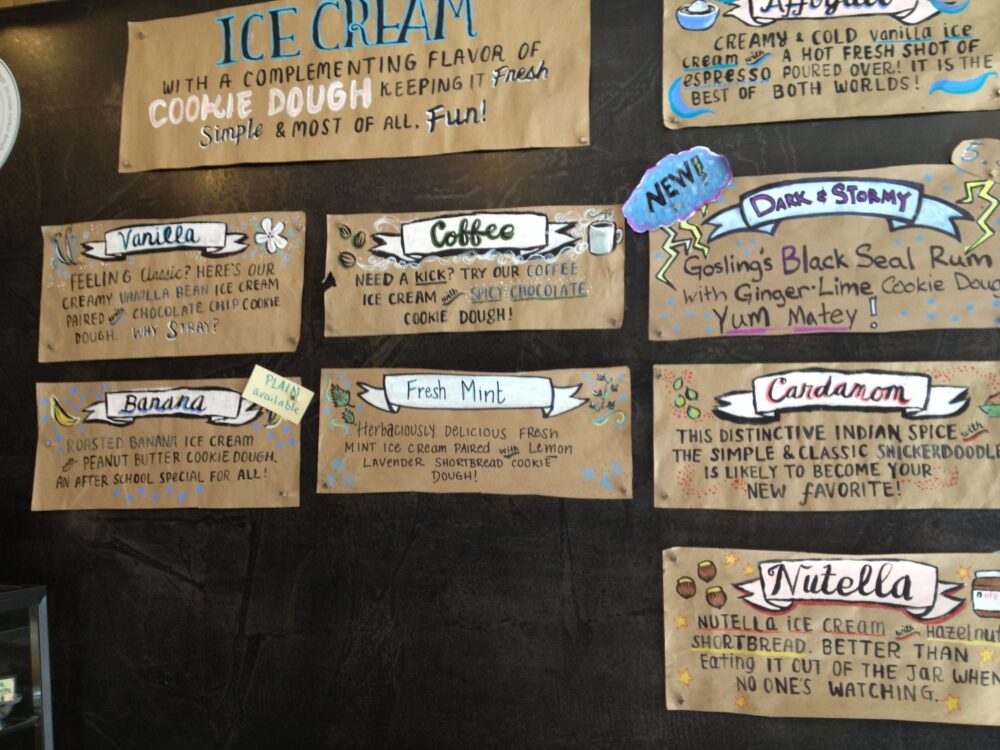 ICE CREAM
WITH A COMPLEMENTING FLAVOR OF
COOKIE DOUGH KEEPING IT Fresh
Simple & MOST OF ALL, Fun!
Affogato
CREAMY & COLD vanilla ice
cream with A HOT FRESH SHOT OF
espresso POURED OVER! IT IS THE
BEST OF BOTH WORLDS!
Vanilla
FEELING Classic? HERE'S OUR
CREAMY VANILLA BEAN ICE CREAM
PAIRED with CHOCOLATE CHIP COOKIE
DOUGH. WHY STRAY?
Coffee
NEED A KICK? TRY OUR COFFEE
ICE CREAM with SPICY CHOCOLATE
COOKIE DOUGH!
NEW!
5
DARK & STORMY
Gosling's Black Seal Rum
with Ginger-Lime Cookie Doug
Yum Matey!
Banana
PLAIN
available
ROASTED BANANA ICE CREAM
with PEANUT BUTTER COOKIE DOUGH.
AN AFTER SCHOOL SPECIAL FOR ALL!
Fresh Mint
Herbaciously Delicious Fresh
Mint Ice Cream Paired with Lemon
Lavender Shortbread Cookie
Dough!
Cardamom
THIS DISTINCTIVE INDIAN SPICE with
THE SIMPLE & CLASSIC SNICKERDOODLE
IS LIKELY TO BECOME YOUR
NEW FAVORITE!
Nutella
NUTELLA ICE CREAM with Hazelnut
SHORTBREAD. BETTER THAN
Eating IT OUT OF THE JAR WHEN
NO ONE'S WATCHING.
nute